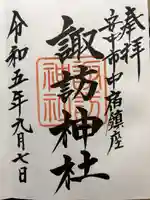 奉拝
安中市中宿鎮座
諏訪神社
令和五年九月七日